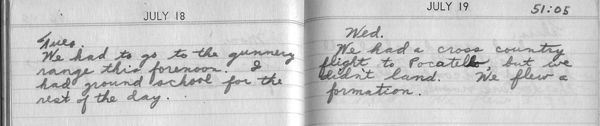 JULY 18
Tues.
We had to go to the gunnery
range this forenoon. I
had ground school for the
rest of the day.
JULY 19
51:05
Wed.
We had a cross country
flight to Pocatello, but we
didn't land. We flew a
formation.